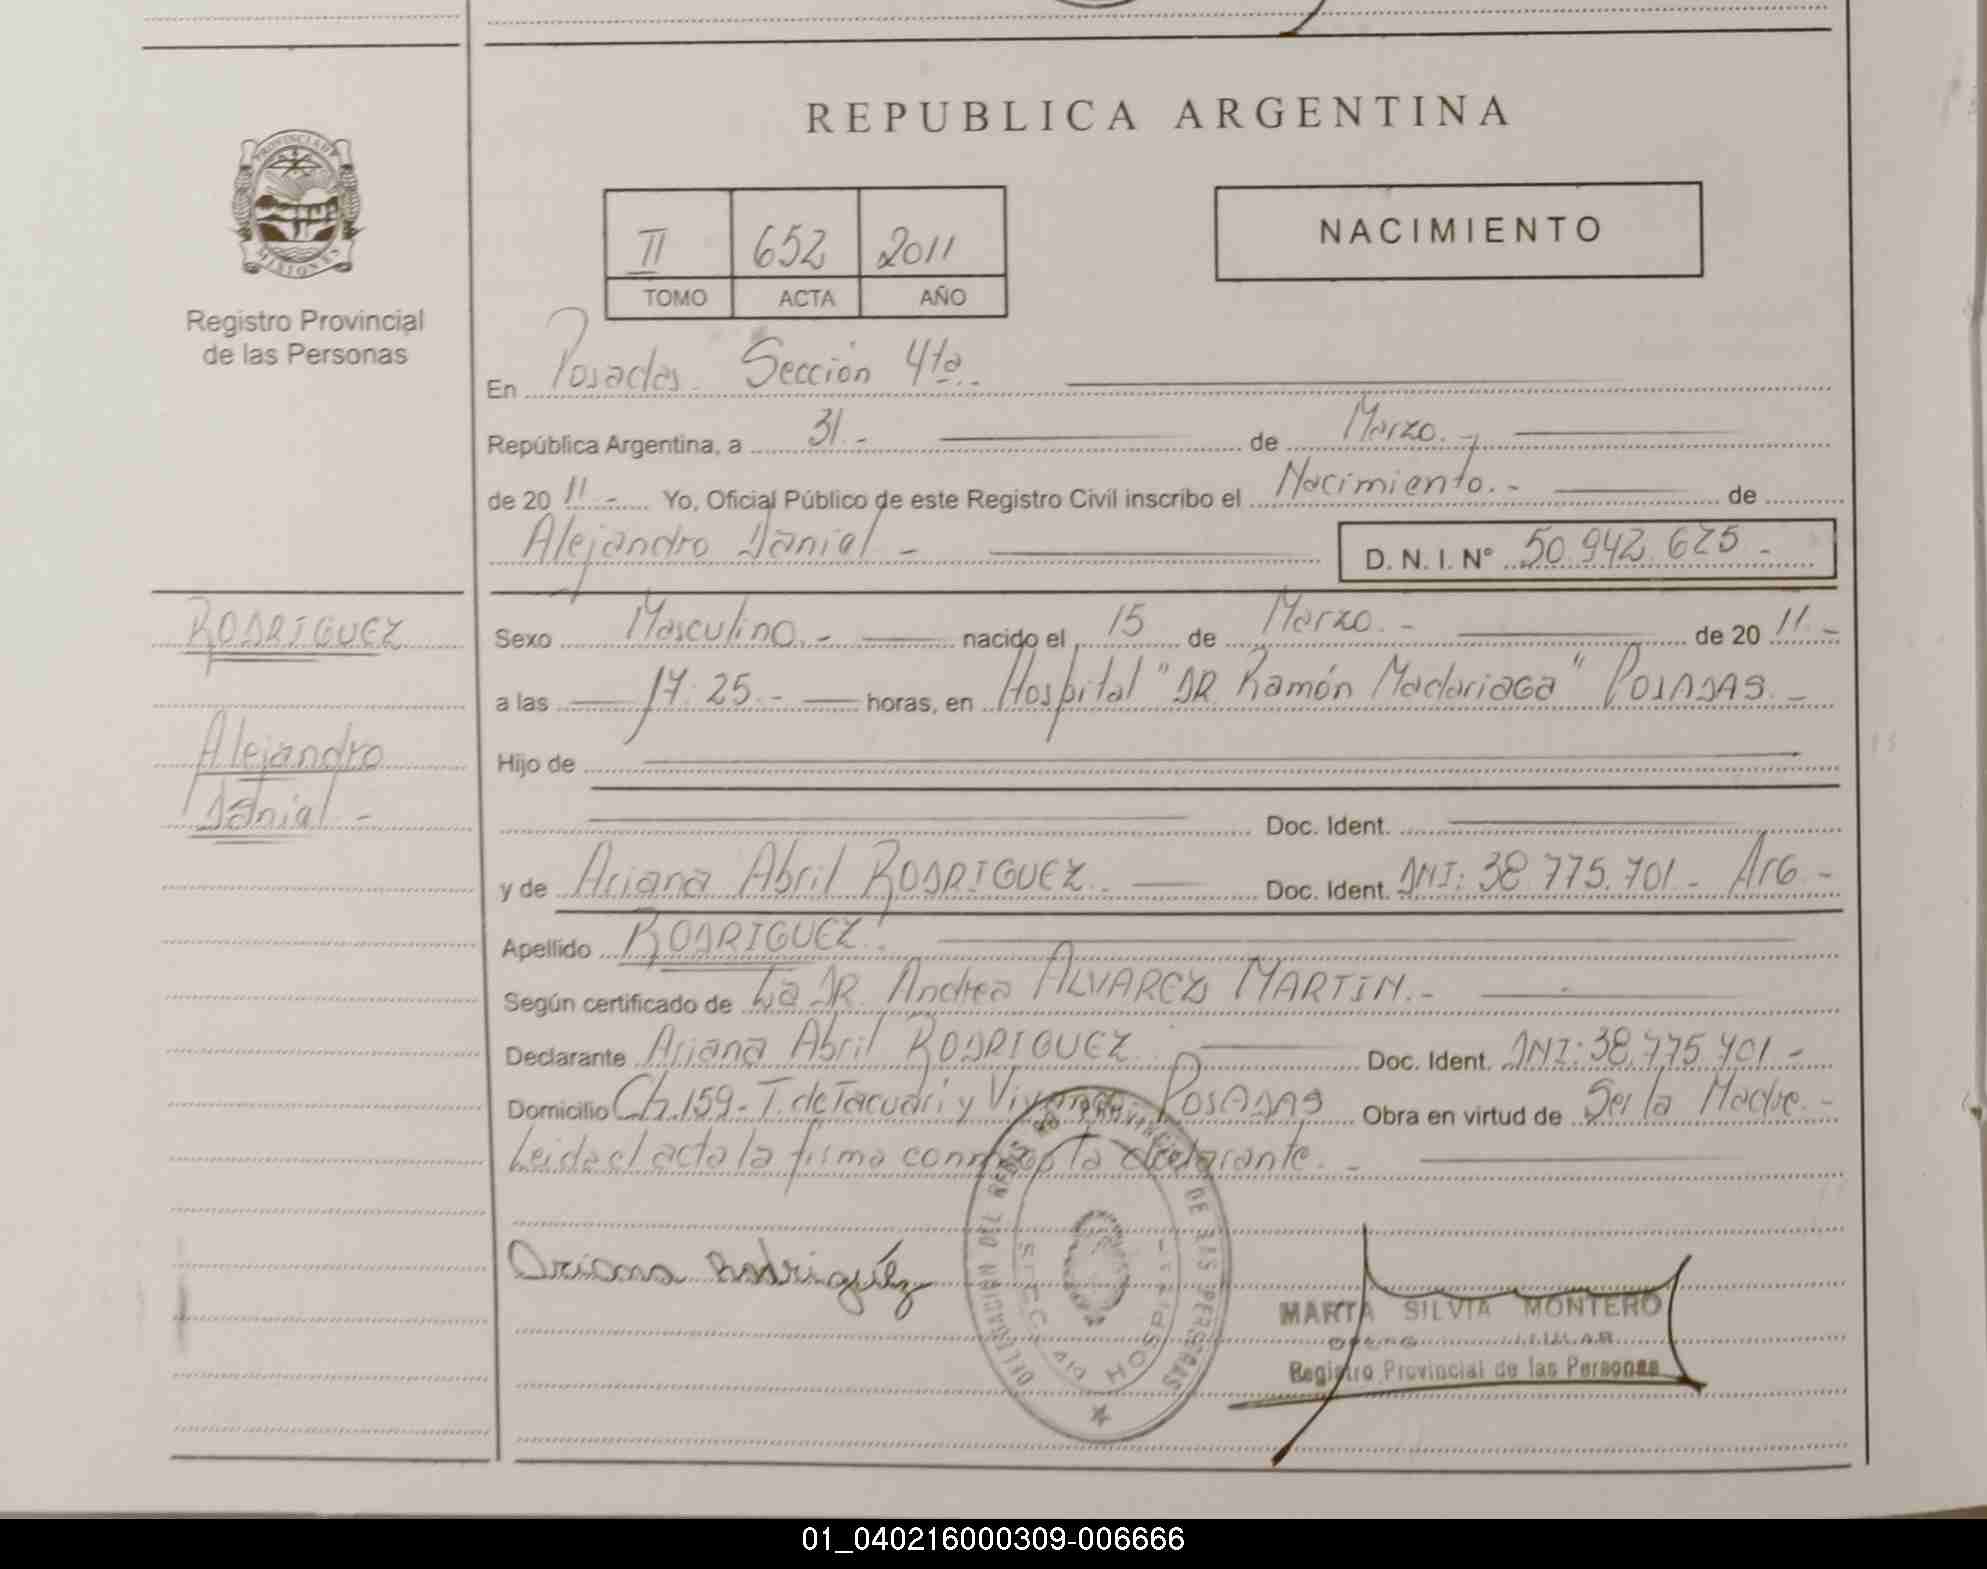 REPUBLICA ARGENTINA
PROVINCIA DE
MISIONES
Registro Provincial
de las Personas
II 652 2011
TOMO ACTA AÑO
NACIMIENTO
En Posadas. Sección 4ta..
República Argentina, a 31.- de Marzo.-
de 20 11.- Yo, Oficial Público de este Registro Civil inscribo el Nacimiento.- de
Alejandro Danial - D. N. I. N° 50.942.625 -
RODRIGUEZ
Alejandro
Danial -
Sexo Masculino.- nacido el 15 de Marzo.- de 20 11.-
a las 17:25.- horas, en Hospital "DR Ramón Madariaga" POSADAS.-
Hijo de
Doc. Ident.
y de Ariana Abril RODRIGUEZ. Doc. Ident. DNI: 38.775.701 - ARG -
Apellido RODRIGUEZ.
Según certificado de La DR. Andrea ALVAREZ MARTIN.-
Declarante Ariana Abril RODRIGUEZ. Doc. Ident. DNI: 38.775.701 -
Domicilio Ch.159- T. de Tacuari y POSADAS Obra en virtud de Ser la Madre.-
Leida el acta la firma conmigo la declarante.-
Ariana Rodriguéz
DELEGACION DEL REG. PROVINCIAL DE LAS PERSONAS
HOSPITAL
MARTA SILVIA MONTERO
Registro Provincial de las Personas
01_040216000309-006666